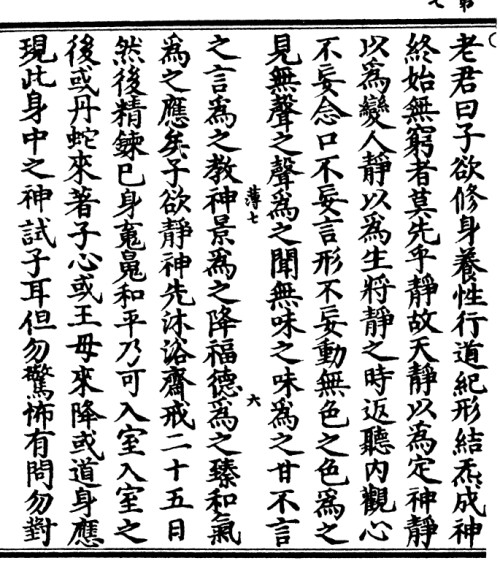 老君曰子欲修身養性行道紀形結炁成神
終始無窮者莫先乎靜故天靜以爲定神靜
以爲變人靜以爲生將靜之時返聽內觀心
不妄念口不妄言形不妄動無色之色爲之
見無聲之聲爲之聞無味之味爲之甘不言
薄七 六
之言爲之教神景爲之降福德爲之臻和氣
爲之應矣子欲靜神先沐浴齋戒二十五日
然後精鍊已身䰟魄和平乃可入室入室之
後或丹蛇來著子心或王母來降或道身應
現此身中之神試子耳但勿驚怖有問勿對